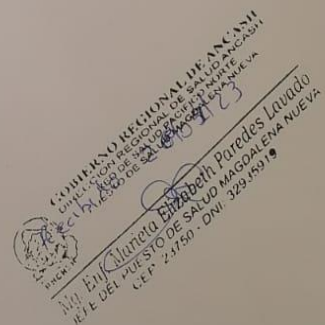 GOBIERNO REGIONAL DE ANCASH
DIRECCION REGIONAL DE SALUD ANCASH
RED DE SALUD PACIFICO NORTE
PUESTO DE SALUD MAGDALENA NUEVA
Recibido
Mg. Enf. Marieta Elizabeth Paredes Lavado
JEFE DEL PUESTO DE SALUD MAGDALENA NUEVA
CEP. 23750 - DNI. 32945919